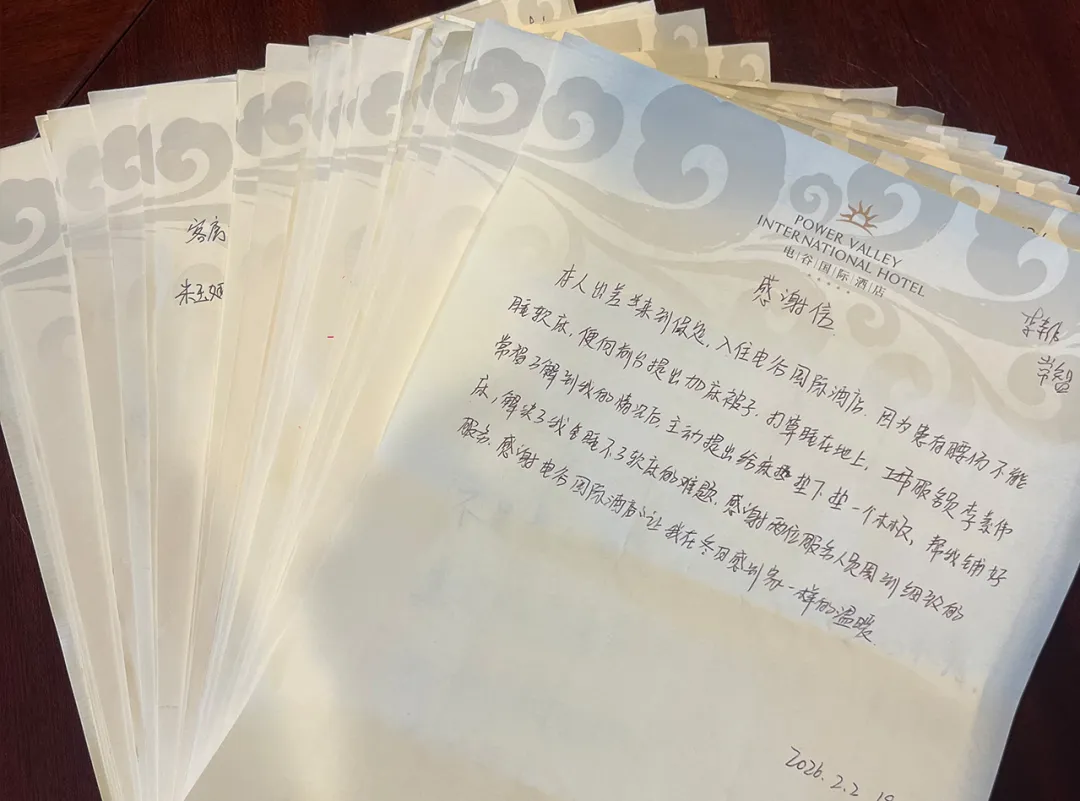 客房
POWER VALLEY
INTERNATIONAL HOTEL
电|谷|国|际|酒|店
感谢信
常智
本人出差来到保定,入住电谷国际酒店.因为患有腰伤不能
睡软床,便向前台提出加床被子.打算睡在地上,工作服务员李素伟
常智了解到我的情况后,主动提出给床垫下垫一个木板,帮我铺好
床,解决了我睡不了软床的难题.感谢两位服务人员周到细致的
服务.感谢电谷国际酒店让我在冬日感到家一样的温暖
2026.2.2